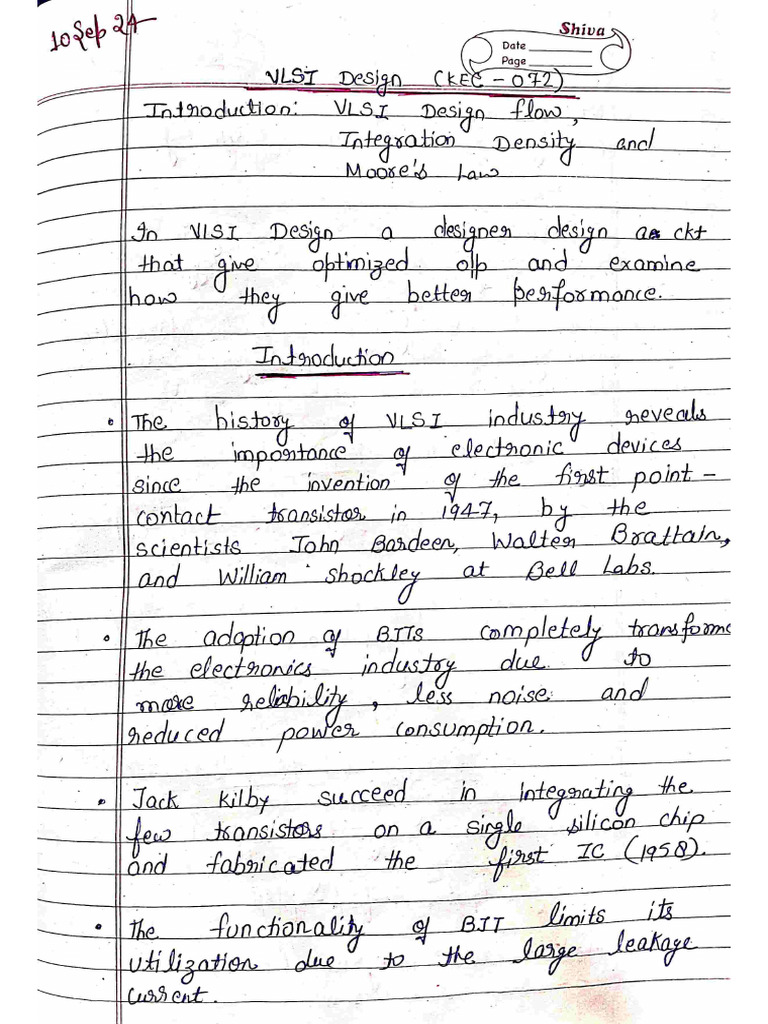 10 Sep 24
Shiva
Date
Page
VLSI Design (KEC - 072)
Introduction: VLSI Design flow,
Integration Density and
Moore's Law
In VLSI Design a designer design a ckt
that give optimized o/p and examine
how they give better performance.
Introduction
• The history of VLSI industry reveals
the importance of electronic devices
since the invention of the first point-
contact transistor in 1947, by the
scientists John Bardeen, Walter Brattain,
and William Shockley at Bell Labs.
• The adoption of BJTs completely transforms
the electronics industry due to
more reliability, less noise and
reduced power consumption.
• Jack Kilby succeed in integrating the
few transistors on a single silicon chip
and fabricated the first IC (1958).
• The functionality of BJT limits its
utilization due to the large leakage
current.